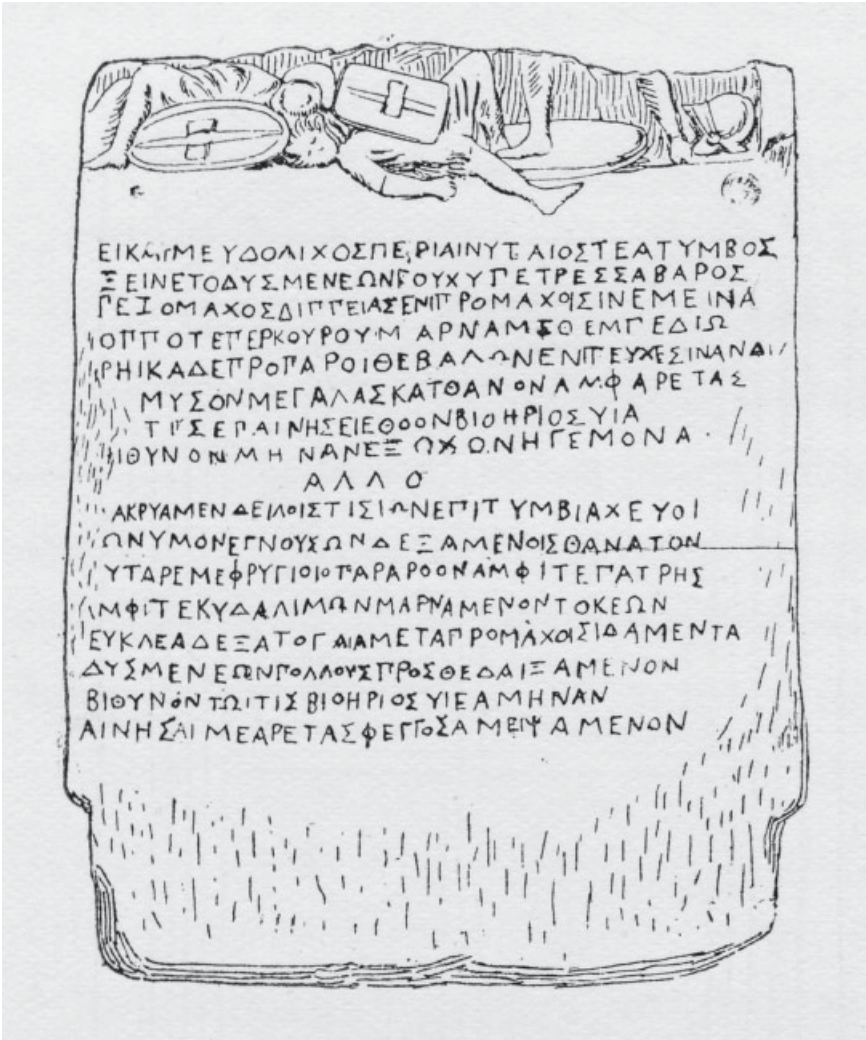 ΕΙΚΑΙΜΕΥΔΟΛΙΧΟΣΠΕΡΙΑΙΝΥΤΑΙΟΣΤΕΑΤΥΜΒΟΣ
ΞΕΙΝΕΤΟΔΥΣΜΕΝΕΩΝΓΟΥΧΥΠΕΤΡΕΣΣΑΒΑΡΟΣ
ΠΕΖΟΜΑΧΟΣΔΙΠΠΕΙΑΣΕΝΙΠΡΟΜΑΧΟΙΣΙΝΕΜΕΙΝΑ
ΟΠΠΟΤΕΠΕΡΚΟΥΡΟΥΜΑΡΝΑΜΕΘΕΜΠΕΔΙΩ
ΡΗΙΚΑΔΕΠΡΟΠΑΡΟΙΘΕΒΑΛΩΝΕΝΙΤΕΥΧΕΣΙΝΑΝΔ
ΜΥΣΟΝΜΕΓΑΛΑΣΚΑΤΘΑΝΟΝΑΜΦΑΡΕΤΑΣ
ΤΙΣΣΕΠΑΙΝΗΣΕΙΕΘΟΟΝΒΙΟΗΡΙΟΣΥΙΑ
ΙΘΥΝΟΝΜΗΝΑΝΕΞΟΧΩΝΗΓΕΜΟΝΑ
ΑΛΛΟ
ΑΚΡΥΑΜΕΝΔΕΙΛΟΙΣΤΙΣΙΩΝΕΠΙΤΥΜΒΙΑΧΕΥΟΙ
ΩΝΥΜΟΝΕΓΝΟΥΣΩΝΔΕΞΑΜΕΝΟΙΣΘΑΝΑΤΟΝ
ΥΤΑΡΕΜΕΦΡΥΓΙΟΙΟΠΑΡΑΡΟΟΝΑΜΦΙΤΕΠΑΤΡΗΣ
ΜΦΙΤΕΚΥΔΑΛΙΜΩΝΜΑΡΝΑΜΕΝΟΝΤΟΚΕΩΝ
ΕΥΚΛΕΑΔΕΞΑΤΟΓΑΙΑΜΕΤΑΠΡΟΜΑΧΟΙΣΙΔΑΜΕΝΤΑ
ΔΥΣΜΕΝΕΩΝΠΟΛΛΟΥΣΠΡΟΣΘΕΔΑΙΞΑΜΕΝΟΝ
ΒΙΘΥΝΟΝΤΩΙΤΙΣΒΙΟΗΡΙΟΣΥΙΕΑΜΗΝΑΝ
ΑΙΝΗΣΑΙΜΕΑΡΕΤΑΣΦΕΓΓΟΣΑΜΕΙΨΑΜΕΝΟΝ